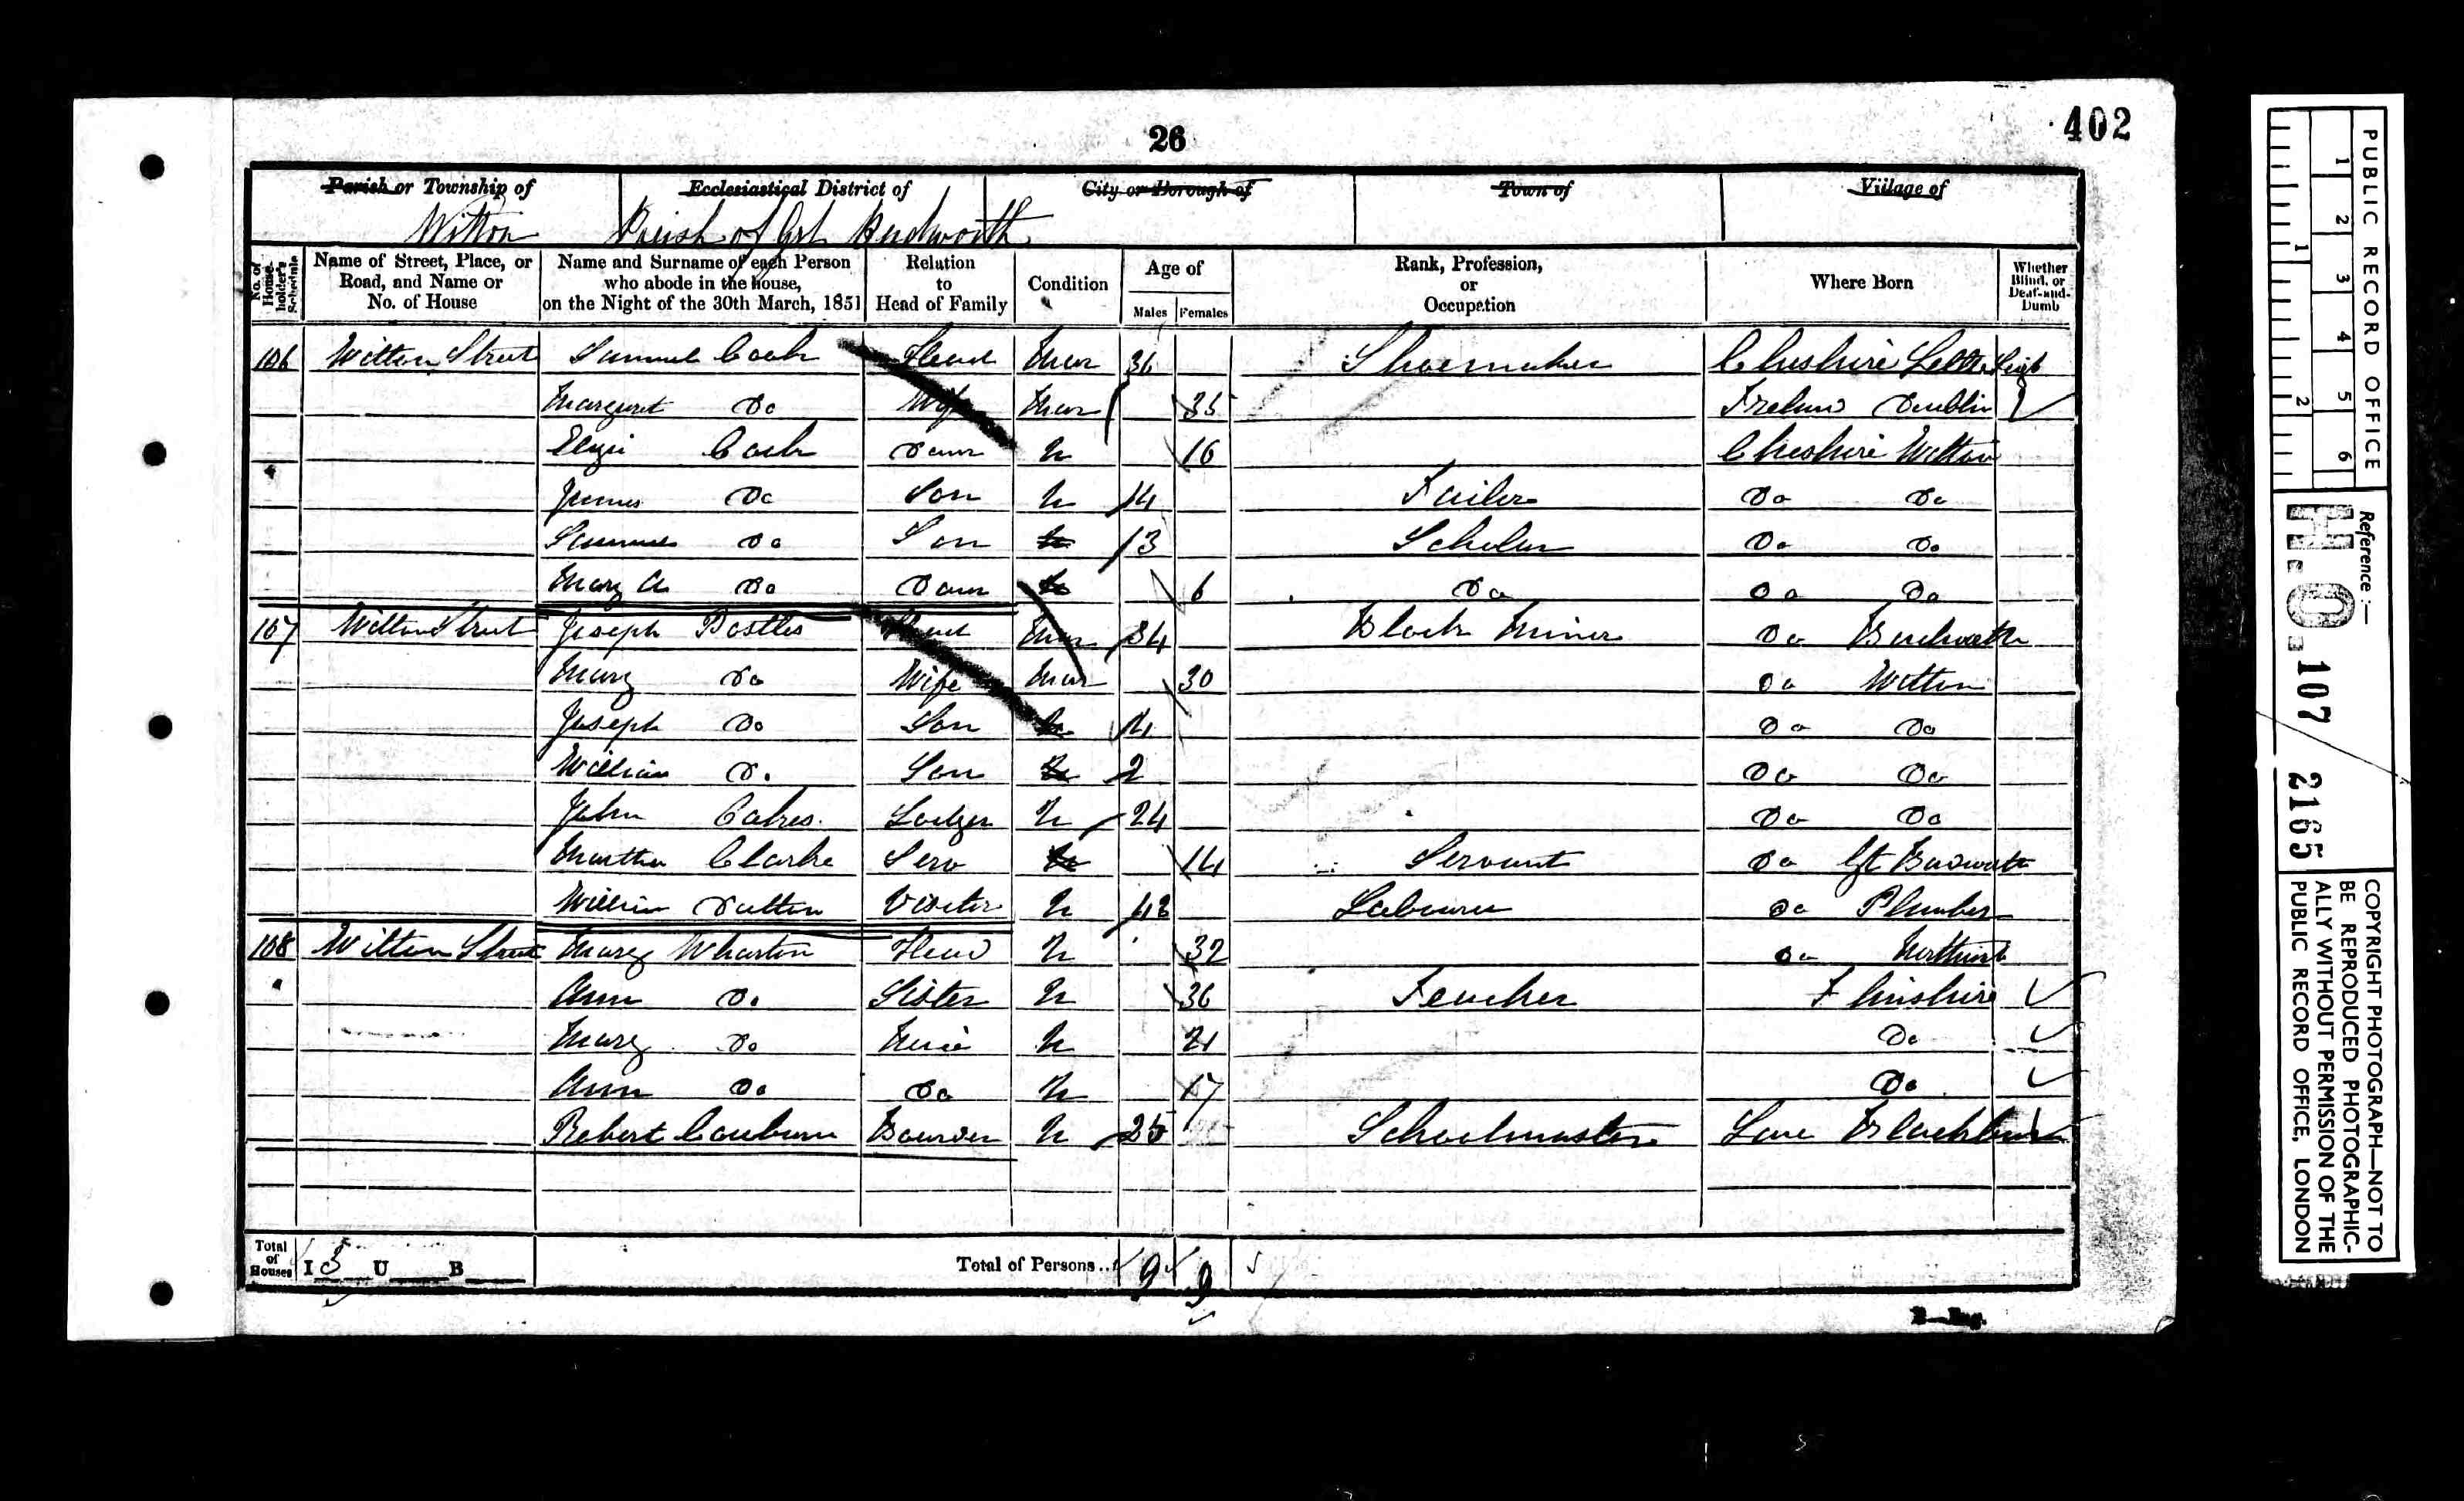 26
402
Parish or Township of
Ecclesiastical District of
City or Borough of
Town of
Village of
Witton
Parish of Grt Budworth
No. of Householder's Schedule
Name of Street, Place, or Road, and Name or No. of House
Name and Surname of each Person who abode in the house, on the Night of the 30th March, 1851
Relation to Head of Family
Condition
Age of
Males Females
Rank, Profession, or Occupation
Where Born
Whether Blind, or Deaf-and-Dumb
106 Witton Street Samuel Head Mar 36 Shoemaker Cheshire Leigh
Margaret Do Wife Mar 35 Ireland Dublin
Daur U 16 Cheshire Witton
James Do Son U 14 Tailor Do Do
Samuel Do Son U 13 Scholar Do Do
Mary A Do Daur U 6 Do Do Do
107 Witton Street Joseph Postles Head Mar 34 Do Budworth
Mary Do Wife Mar 30 Do Witton
Joseph Do Son U 4 Do Do
William Do Son U 2 Do Do
John Lodger U 24 Do Do
Martha Clarke Serv U 14 Servant Do Gt Budworth
William Dutton Visitor U Labourer Do
108 Witton Street Mary Wharton Head U 32 Do Northwich
Ann Do Sister U 36 Teacher Flinshire
Mary Do U 21 Do
Ann Do Do U 17 Do
Robert Boarder U 25 Schoolmaster Blackburn
Total of Houses I 3 U B
Total of Persons.. 9 9
B—Eng.
PUBLIC RECORD OFFICE
1 2 3 4 5 6
1 2
Reference :—
H.O. 107 2165
COPYRIGHT PHOTOGRAPH—NOT TO
BE REPRODUCED PHOTOGRAPHIC-
ALLY WITHOUT PERMISSION OF THE
PUBLIC RECORD OFFICE, LONDON